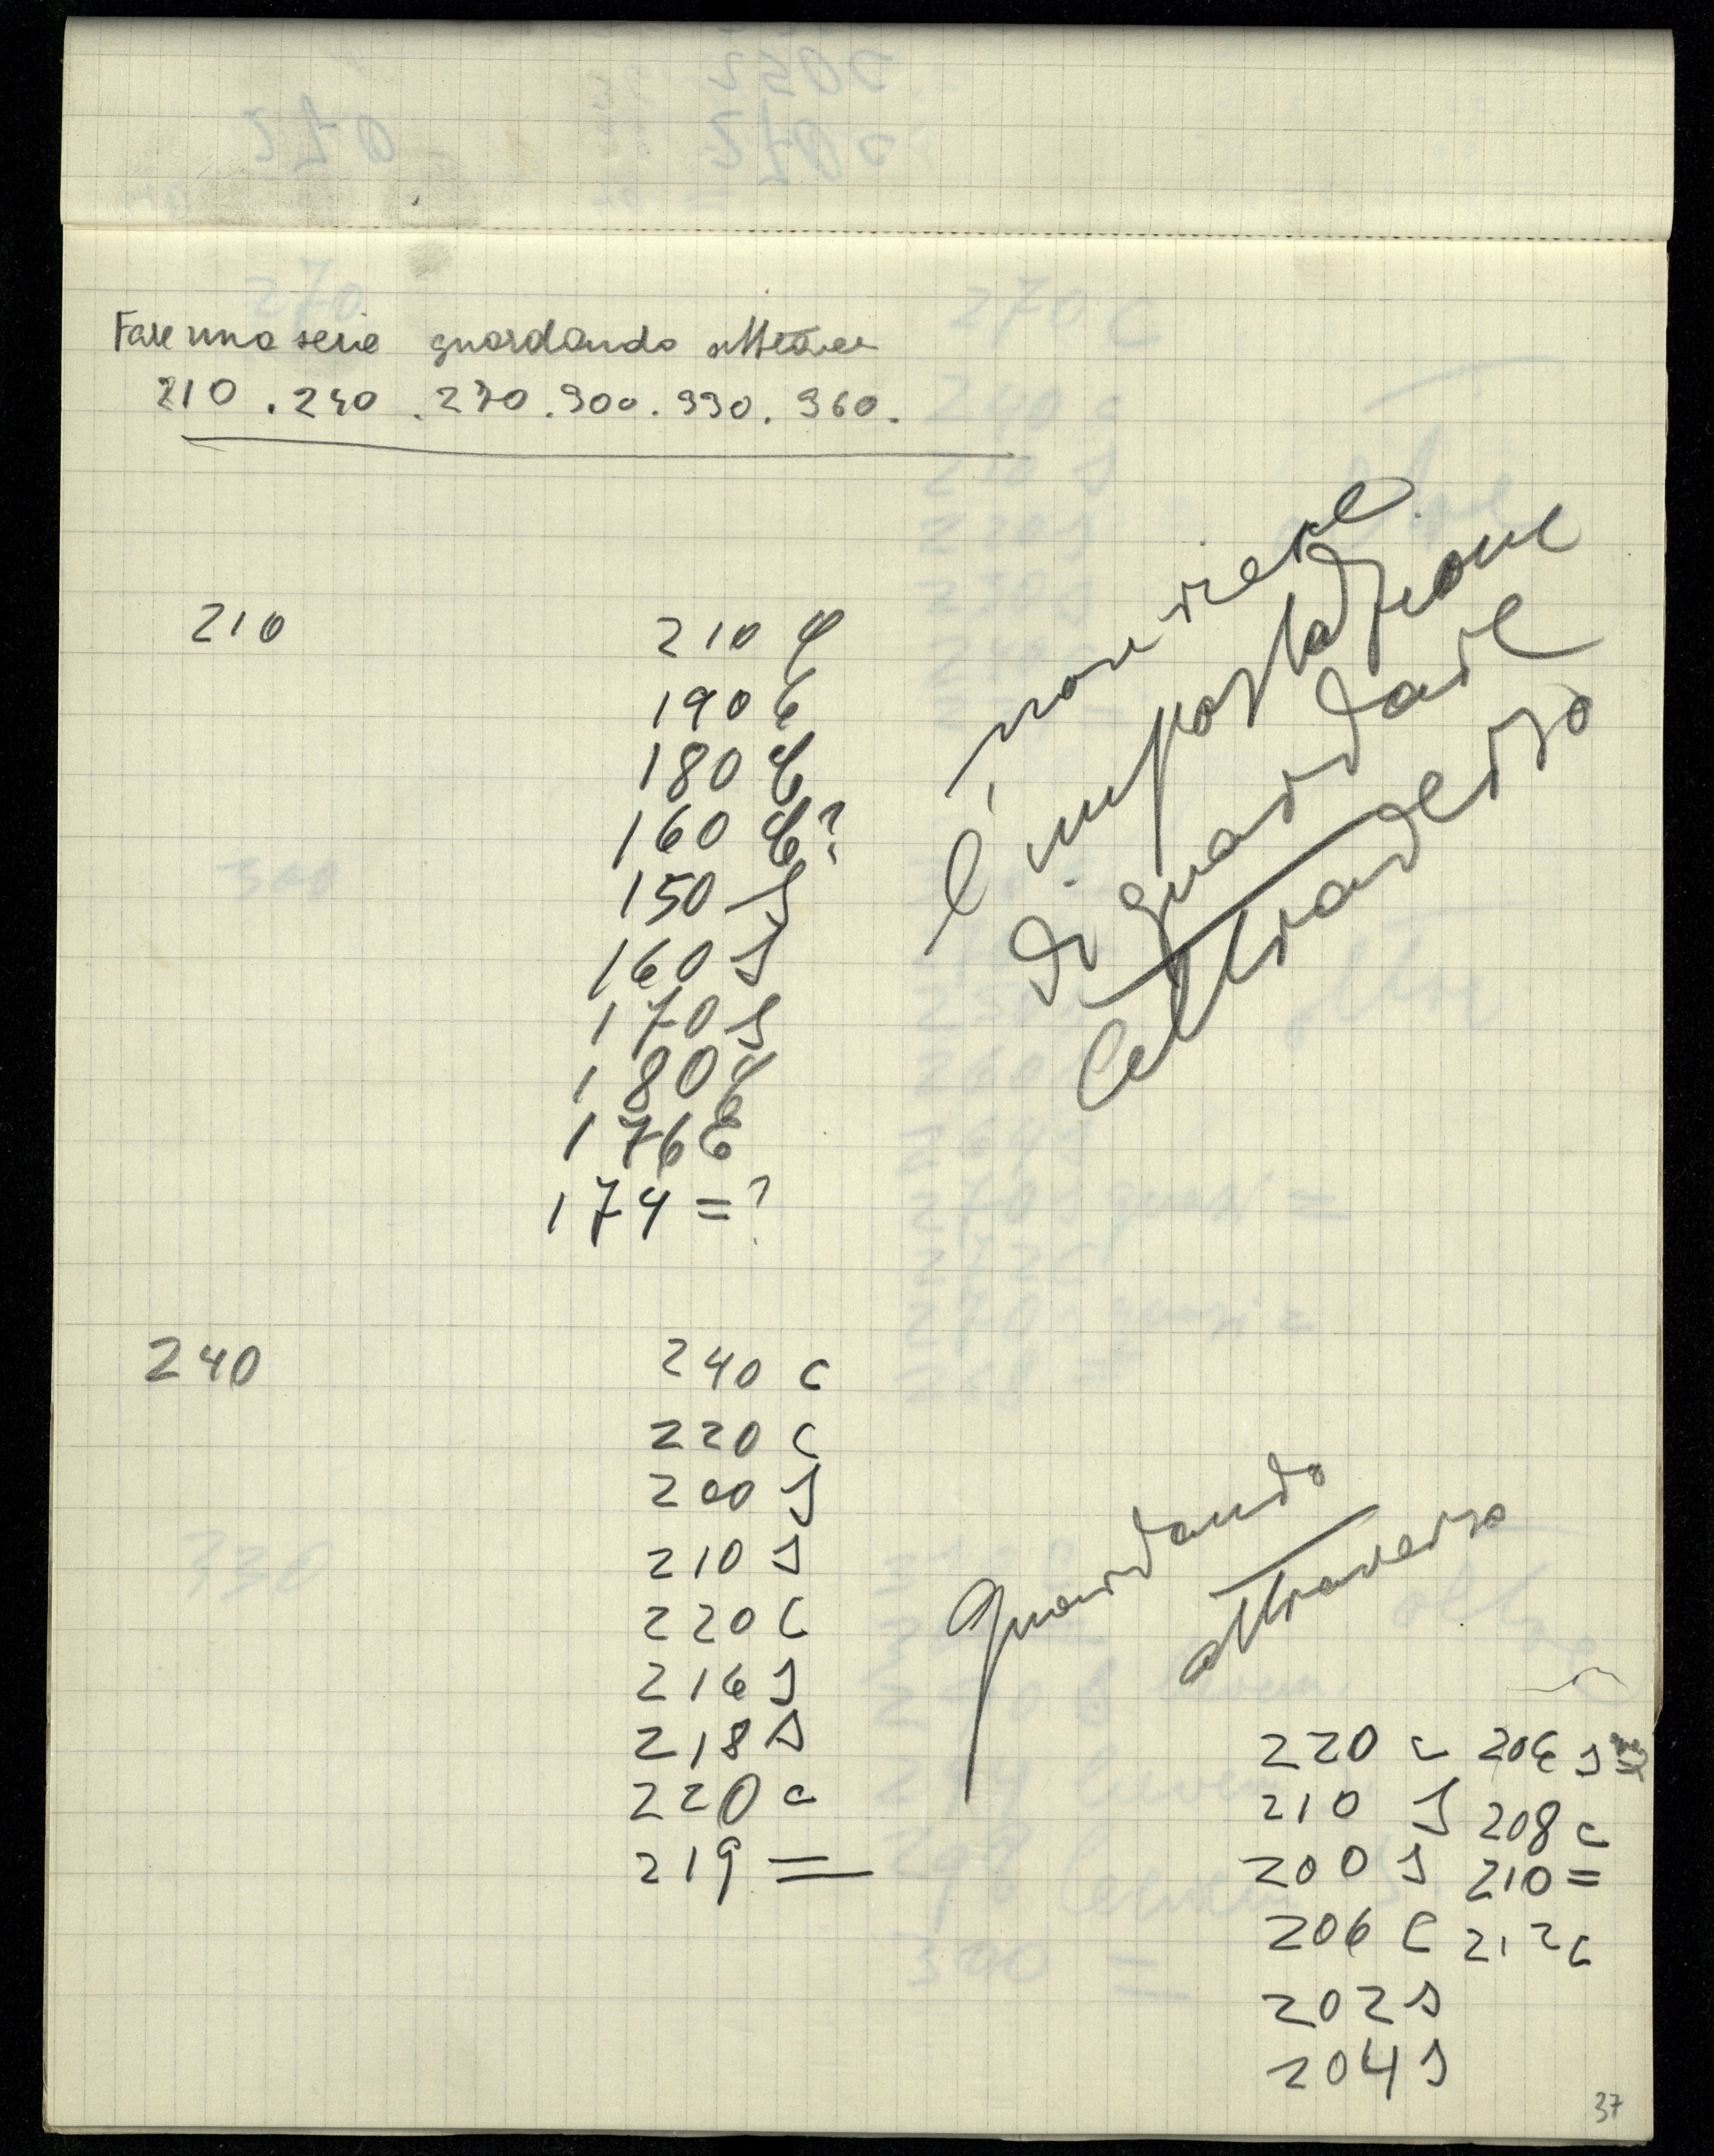 Fare una serie guardando attraver
210 . 240 . 270 . 300 . 330 . 360 .
210
210 C
190 C
180 C
160 C?
150 S
160 S
170 S
180 C
176 C
174 = ?
non viene
l'impostazione
di guardare
attraverso
240
240 C
220 C
200 S
210 S
220 C
216 S
218 S
220 C
219 =
Guardando
attraverso
220 C
210 S
200 S
206 C
202 S
204 S
206 S
208 C
210 =
212 C
37